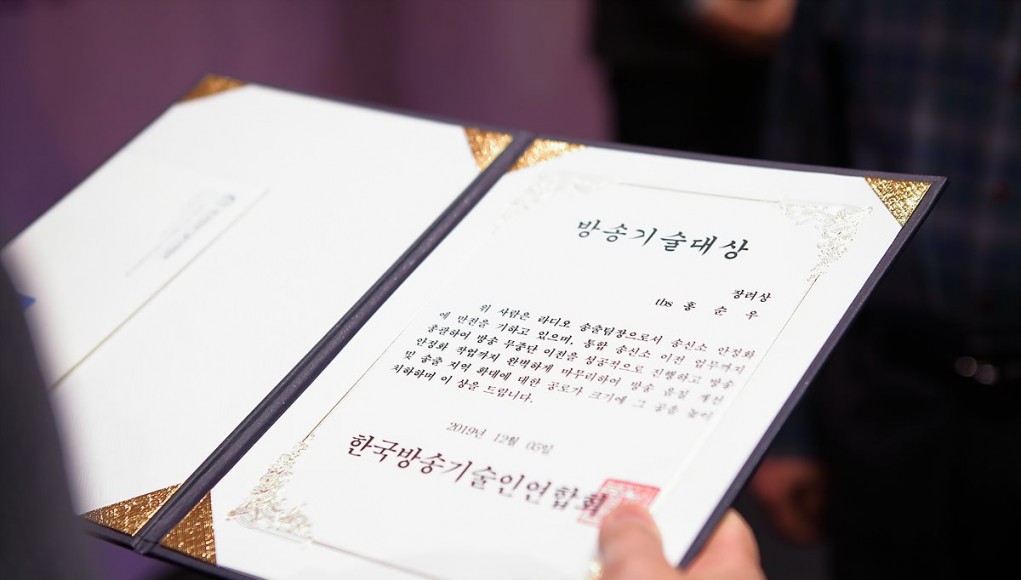 방송기술대상
장려상
tbs 홍 순 우
위 사람은 라디오 송출팀장으로서 송신소 안정화
에 만전을 기하고 있으며, 통합 송신소 이전 업무까지
총괄하여 방송 무중단 이전을 성공적으로 진행하고 방송
안정화 작업까지 완벽하게 마무리하여 방송 음질 개선
및 송출 지역 확대에 대한 공로가 크기에 그 공을 높이
치하하며 이 상을 드립니다.
2019년 12월 05일
한국방송기술인연합회